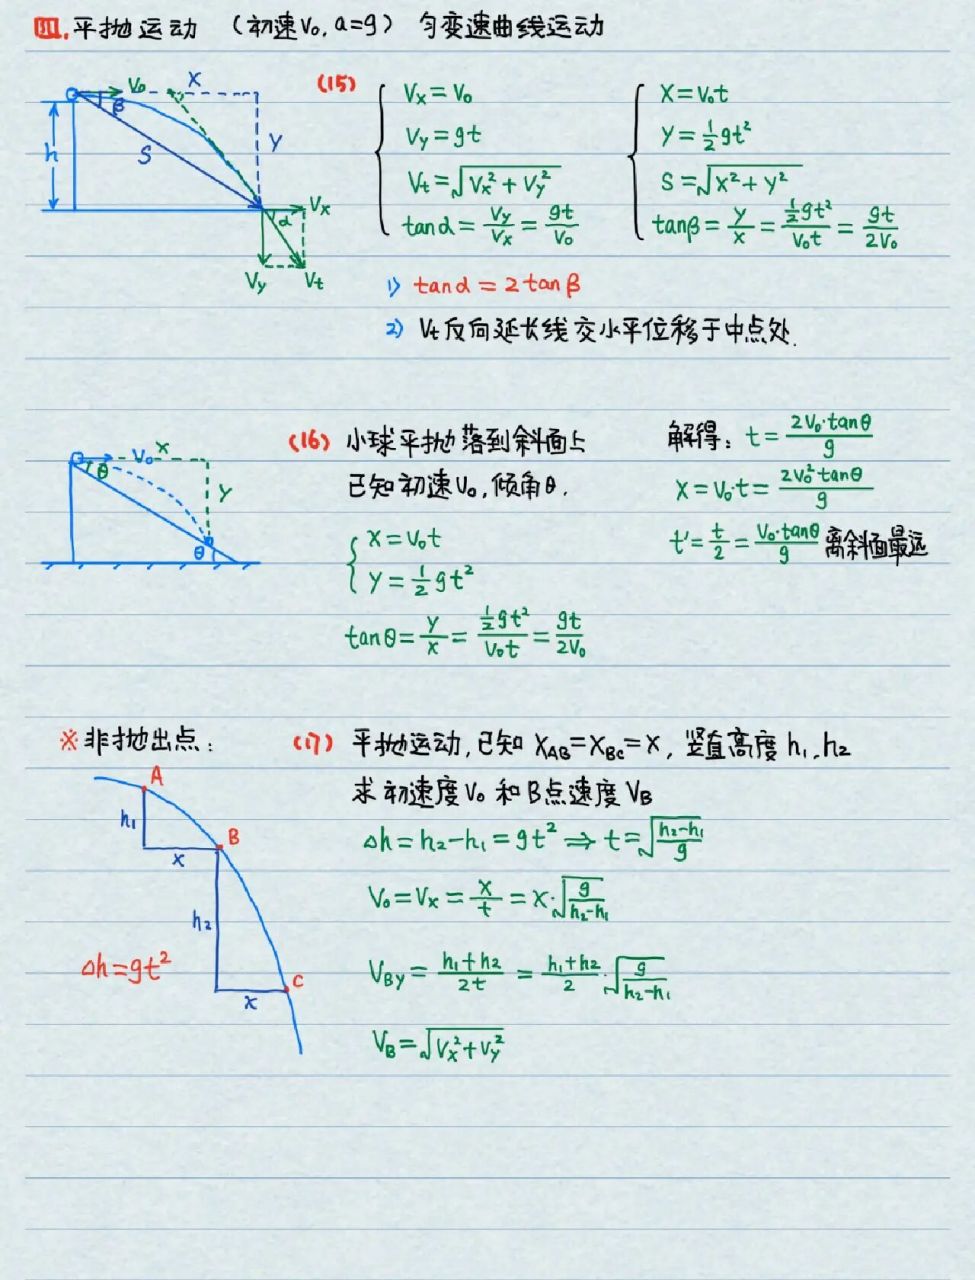 四.平抛运动 (初速V₀, a=g) 匀变速曲线运动
V₀ X
β
h S Y
Vx
α
Vy Vt
(15)
Vx = V₀
Vy = gt
Vt = √(Vx² + Vy²)
tanα = Vy/Vx = gt/V₀
X = V₀t
Y = ½gt²
S = √(X² + Y²)
tanβ = Y/X = ½gt²/V₀t = gt/2V₀
1) tanα = 2tanβ
2) Vt反向延长线交水平位移于中点处.
V₀ X
θ
Y
θ
(16) 小球平抛落到斜面上
已知初速V₀, 倾角θ.
X = V₀t
Y = ½gt²
tanθ = Y/X = ½gt²/V₀t = gt/2V₀
解得: t = 2V₀·tanθ/g
X = V₀·t = 2V₀²tanθ/g
t' = t/2 = V₀·tanθ/g 离斜面最远
※非抛出点:
A
h₁
x
B
h₂
Δh=gt²
x
C
(17) 平抛运动, 已知 X_AB=X_BC=X, 竖直高度 h₁.h₂
求初速度V₀和B点速度V_B
Δh = h₂-h₁ = gt² ⇒ t = √((h₂-h₁)/g)
V₀ = Vx = X/t = X·√(g/(h₂-h₁))
V_BY = (h₁+h₂)/2t = (h₁+h₂)/2·√(g/(h₂-h₁))
V_B = √(Vx² + Vy²)